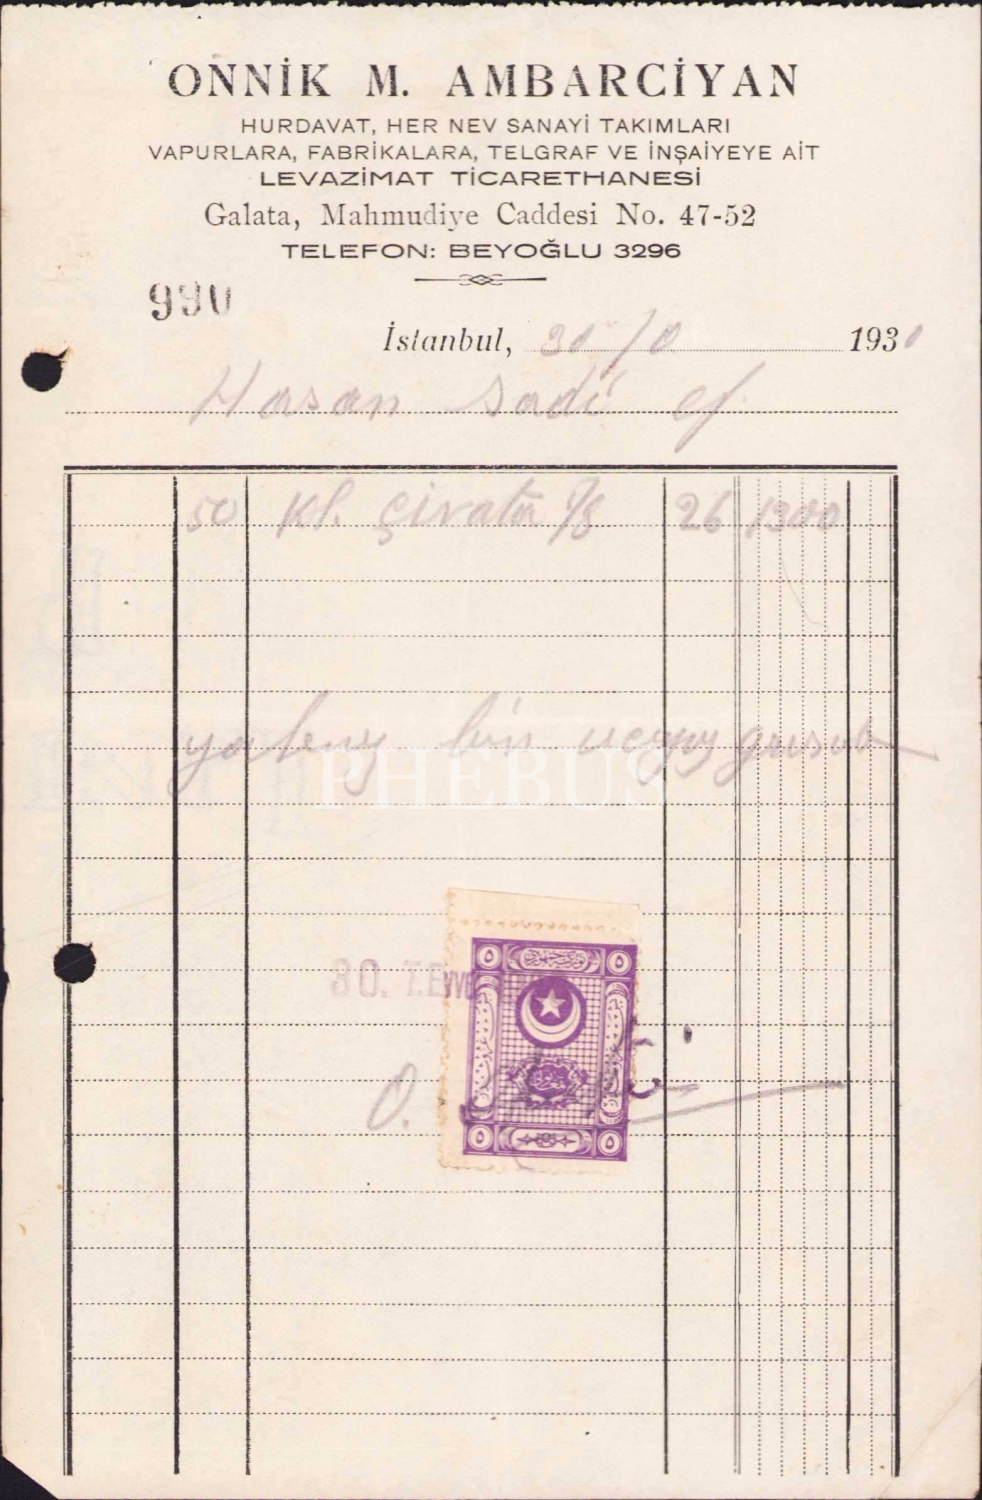 ONNİK M. AMBARCİYAN
HURDAVAT, HER NEV SANAYİ TAKIMLARI
VAPURLARA, FABRİKALARA, TELGRAF VE İNŞAİYEYE AİT
LEVAZİMAT TİCARETHANESİ
Galata, Mahmudiye Caddesi No. 47-52
TELEFON: BEYOĞLU 3296
990
İstanbul, 30/ 193
Hasan Sadi ef
50 Kl. 26 1300
yalnız bin üçyüz
PHEBUS
30. T.EVVEL
٥ ٥
O.
٥ ٥